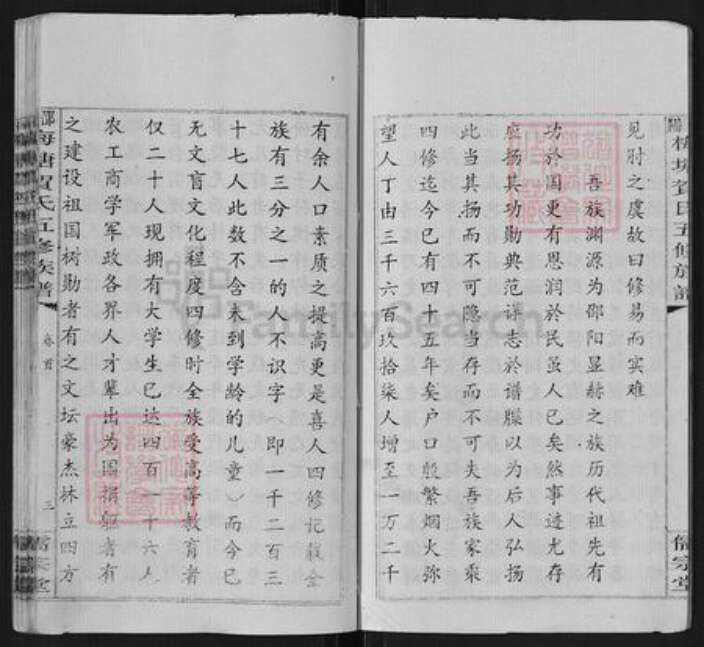 见肘之虞故曰修易而实难
吾族渊源为邵阳显赫之族历代祖先有
功於国更有恩润於民虽人已矣然事迹尤存
应扬其功勋典范详志於谱牒以为后人弘扬
此当其扬而不可隐当存而不可失吾族家乘
四修迄今已有四十五年矣户口殷繁烟火弥
望人丁由三千六百玖拾柒人增至一万二千
儒宗堂
邵
五修族谱
卷首
三
有余人口素质之提高更是喜人四修记载全
族有三分之一的人不识字（即一千二百三
十七人此数不含未到学龄的儿童）而今已
无文盲文化程度四修时全族受高等教育者
仅二十人现拥有大学生已达四百一十六人
农工商学军政各界人才辈出为国捐躯者有
之建设祖国树勋者有之文坛豪杰林立四方
FamilySearch